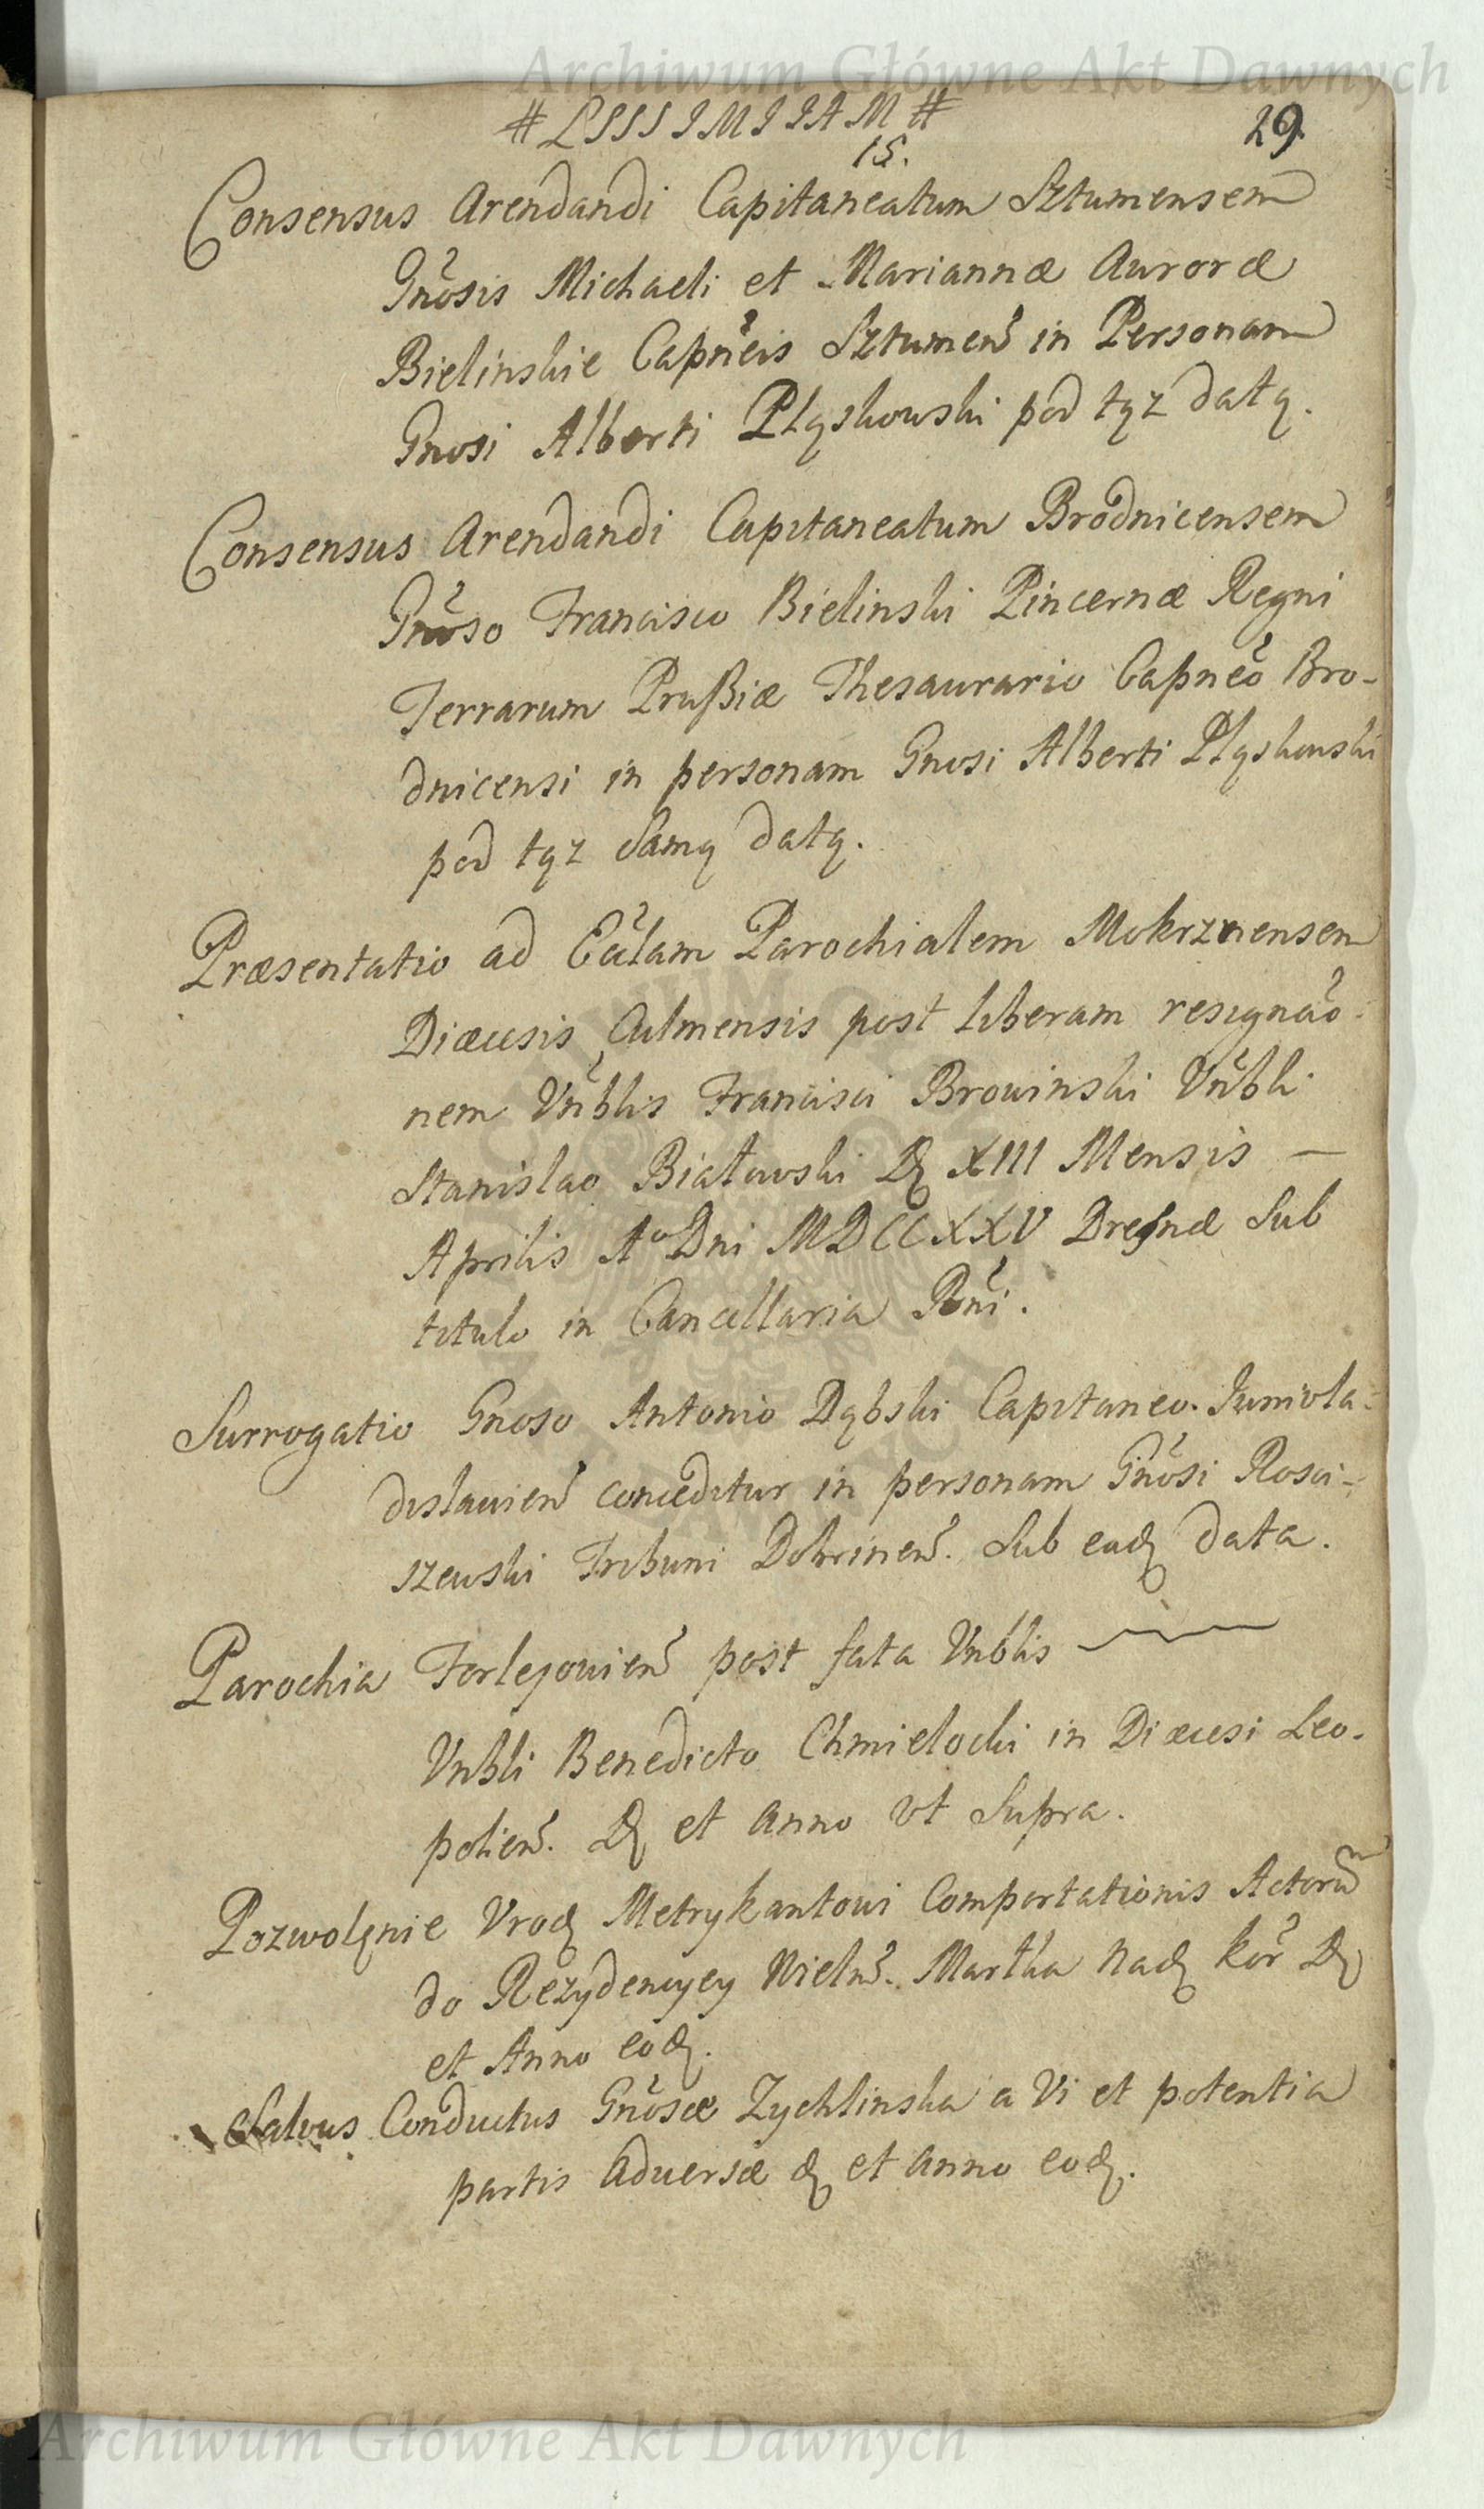 Archiwum Główne Akt Dawnych
# L S S S I M I I A M #
29.
15.
Consensus Arendandi Capitaneatum Sztumensem
Gnosis Michaeli et Mariannæ Auroræ
Bielinskie Capneis Sztumen in Personam
Gnosi Alberti Pląskowski pod tąz datą.
Consensus Arendandi Capitaneatum Brodnicensem
Gnoso Francisco Bielinski Pincernæ Regni
Terrarum Prußiæ Thesaurario Capneo Bro-
dnicensi in personam Gnosi Alberti Pląskowski
pod tąz samą datą.
Præsentatio ad Eccłam Parochialem Mokrznensem
Diæcesis Culmensis post liberam resignao-
nem Vnblis Francisci Browinski Vnbli
Stanislao Białowski D XIII Mensis —
Aprilis Aº Dni MDCCXXV Dresnæ Sub
titulo in Cancellaria Rni.
Surrogatio Gnoso Antonio Dąbski Capitaneo Juniola-
dislavien conceditur in personam Gnosi Rosci-
szewski Tribuni Dobrinen. Sub ead data.
Parochia Torlegovien post fata Vnblis
Vnbli Benedicto Chmielocki in Diæcesi Leo-
polien. D et Anno vt Supra.
Pozwolęnie Vrod Metrykantowi Comportationis Actorum
do Rezydencyey Wieln. Martka Nad kor D
et Anno eod.
Salvus Conductus Gnosæ Zychlinska a Vi et potentia
partis Adversæ d et Anno eod.
Archiwum Główne Akt Dawnych